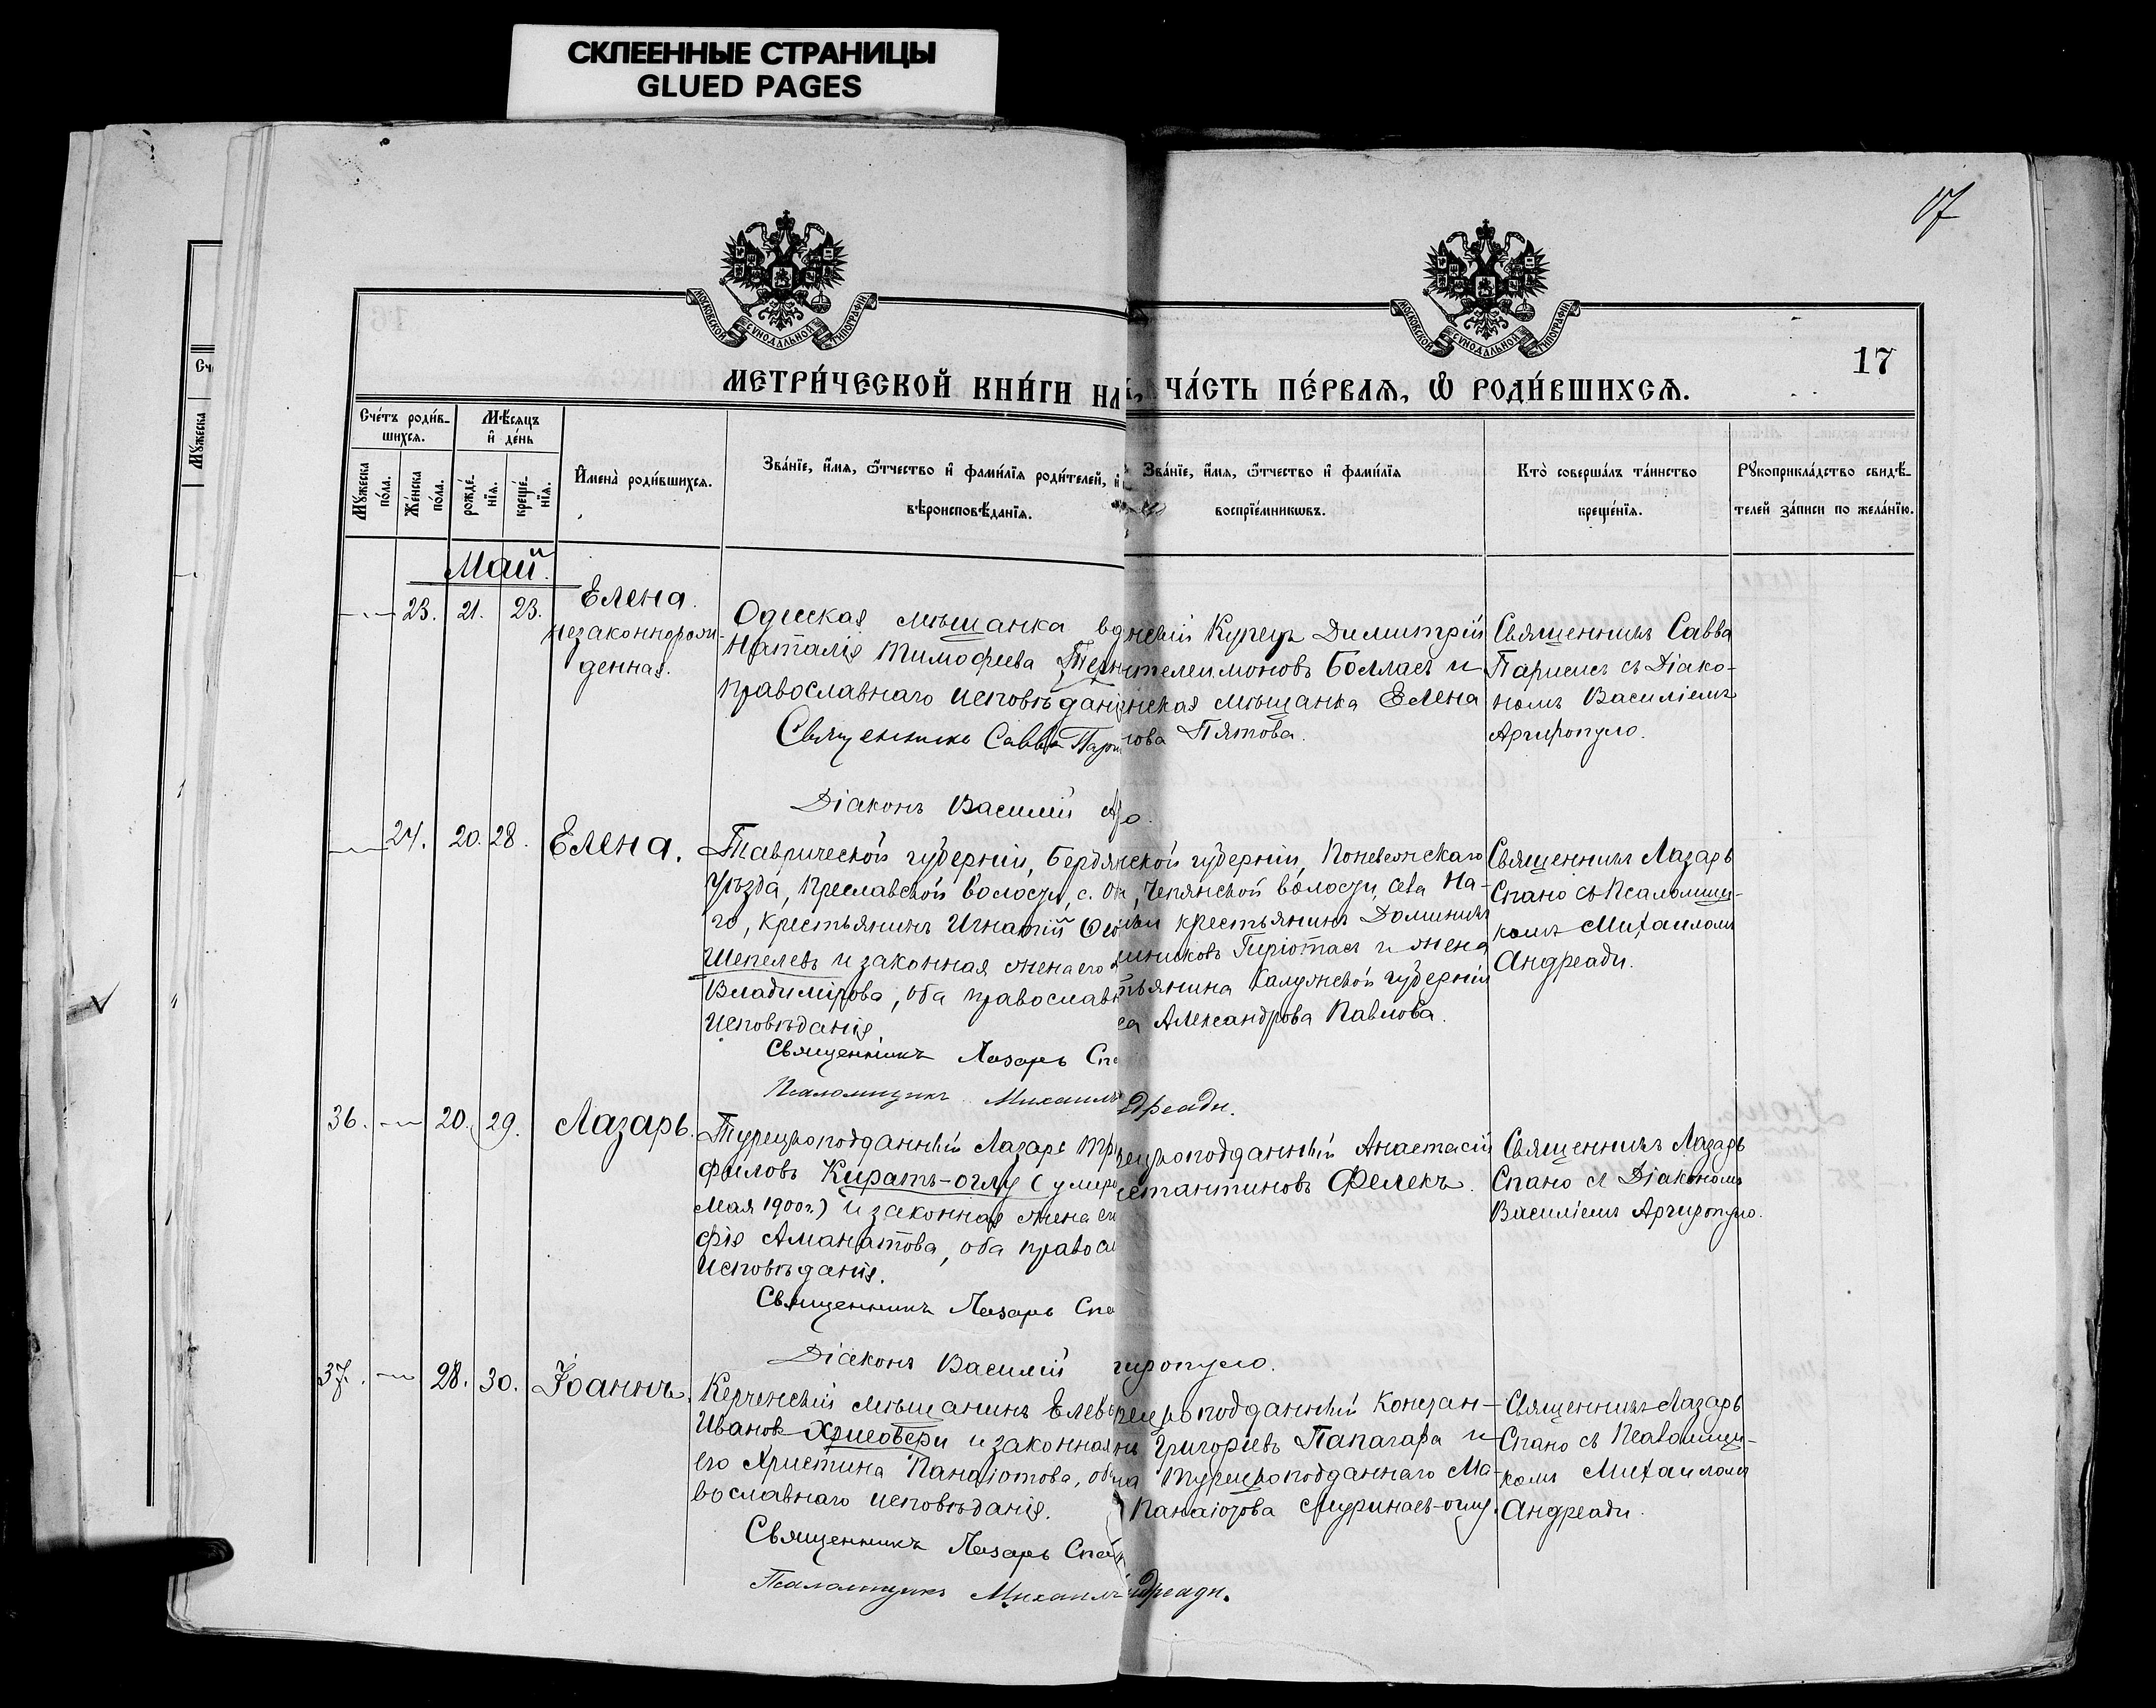 СКЛЕЕННЫЕ СТРАНИЦЫ
GLUED PAGES
17
МОСКОВСКОЙ СѴНОДАЛЬНОЙ ТИПОГРАФІИ
МОСКОВСКОЙ СѴНОДАЛЬНОЙ ТИПОГРАФІИ
17
МЕТРИ́ЧЕСКОЙ КНИ́ГИ НА
ЧА́СТЬ ПЕ́РВАѦ, Ѡ҆ РОДИ́ВШИХСѦ.
Сче́тъ роди́в-
шихсѧ.
Мѣ́сѧцъ
и҆ де́нь
Мꙋ́жеска
по́ла.
Же́нска
по́ла.
рожде́-
нїѧ.
креще́-
нїѧ.
И҆мена̀ роди́вшихсѧ.
Зва́нїе, и҆́мѧ, ѻ҆́тчество и҆ фами́лїѧ роди́телей, и҆
вѣроисповѣ́данїѧ.
Зва́нїе, и҆́мѧ, ѻ҆́тчество и҆ фами́лїѧ
воспрїе́мникѡвъ.
Кто̀ соверша́лъ та́инство
креще́нїѧ.
Рꙋкоприкла́дство свидѣ́-
телей за́писи по жела́нїю.
Май
23. 21. 23.
Елена.
незаконнорож-
денная.
Одесская мѣщанка
Наталія Тимофеева
православнаго исповѣданія
Священникъ Савва
Діаконъ Василій
нскій Купецъ Димитрій
нтелеимоновъ Болласъ и
нская мѣщанка Елена
ова Пятова.
о.
Священникъ Савва
Парисисъ съ Діако-
номъ Василіемъ
Аргиропуло.
24. 20. 28.
Елена.
Таврической губерніи, Бердян
Уѣзда, Преславской волости, с.
го, крестьянинъ Игнатій
Шепелевъ и законная жена его
Владимірова, оба православн
исповѣданія
Священникъ Лазарь Спа
Псаломщикъ Михаилъ
ской губерніи, Поневежскаго
, Чепянской волости, села На-
крестьянинъ Доминикъ
иниковъ Гиріотасъ и жена
тьянина Калужской губерніи
са Александрова Павлова.
дреади.
Священникъ Лазарь
Спано съ Псаломщи-
комъ Михаиломъ
Андреади.
36. 20. 29.
Лазарь.
Турецкоподданный Лазарь
филовъ Киратъ-оглу (умер
мая 1900г.) и законная жена его
фія Аманатова, оба правосл
исповѣданія.
Священникъ Лазарь Спа
Діаконъ Василій
рецкоподданный Анастасій
стантиновъ Фелекъ.
гиропуло.
Священникъ Лазарь
Спано съ Діакономъ
Василіемъ Аргиропуло.
37. 28. 30.
Іоаннъ.
Керченскій мѣщанинъ Елев
Ивановъ Хрисовери и законная
его Христина Панаіотова, об
вославнаго исповѣданія.
Священникъ Лазарь Спа
Псаломщикъ Михаилъ
рецкоподданный Констан-
нъ Григоріевъ Папагара и
на Турецкоподданнаго Ма-
Панаіотова
ндреади.
Священникъ Лазарь
Спано съ Псаломщи-
комъ Михаиломъ
Андреади.